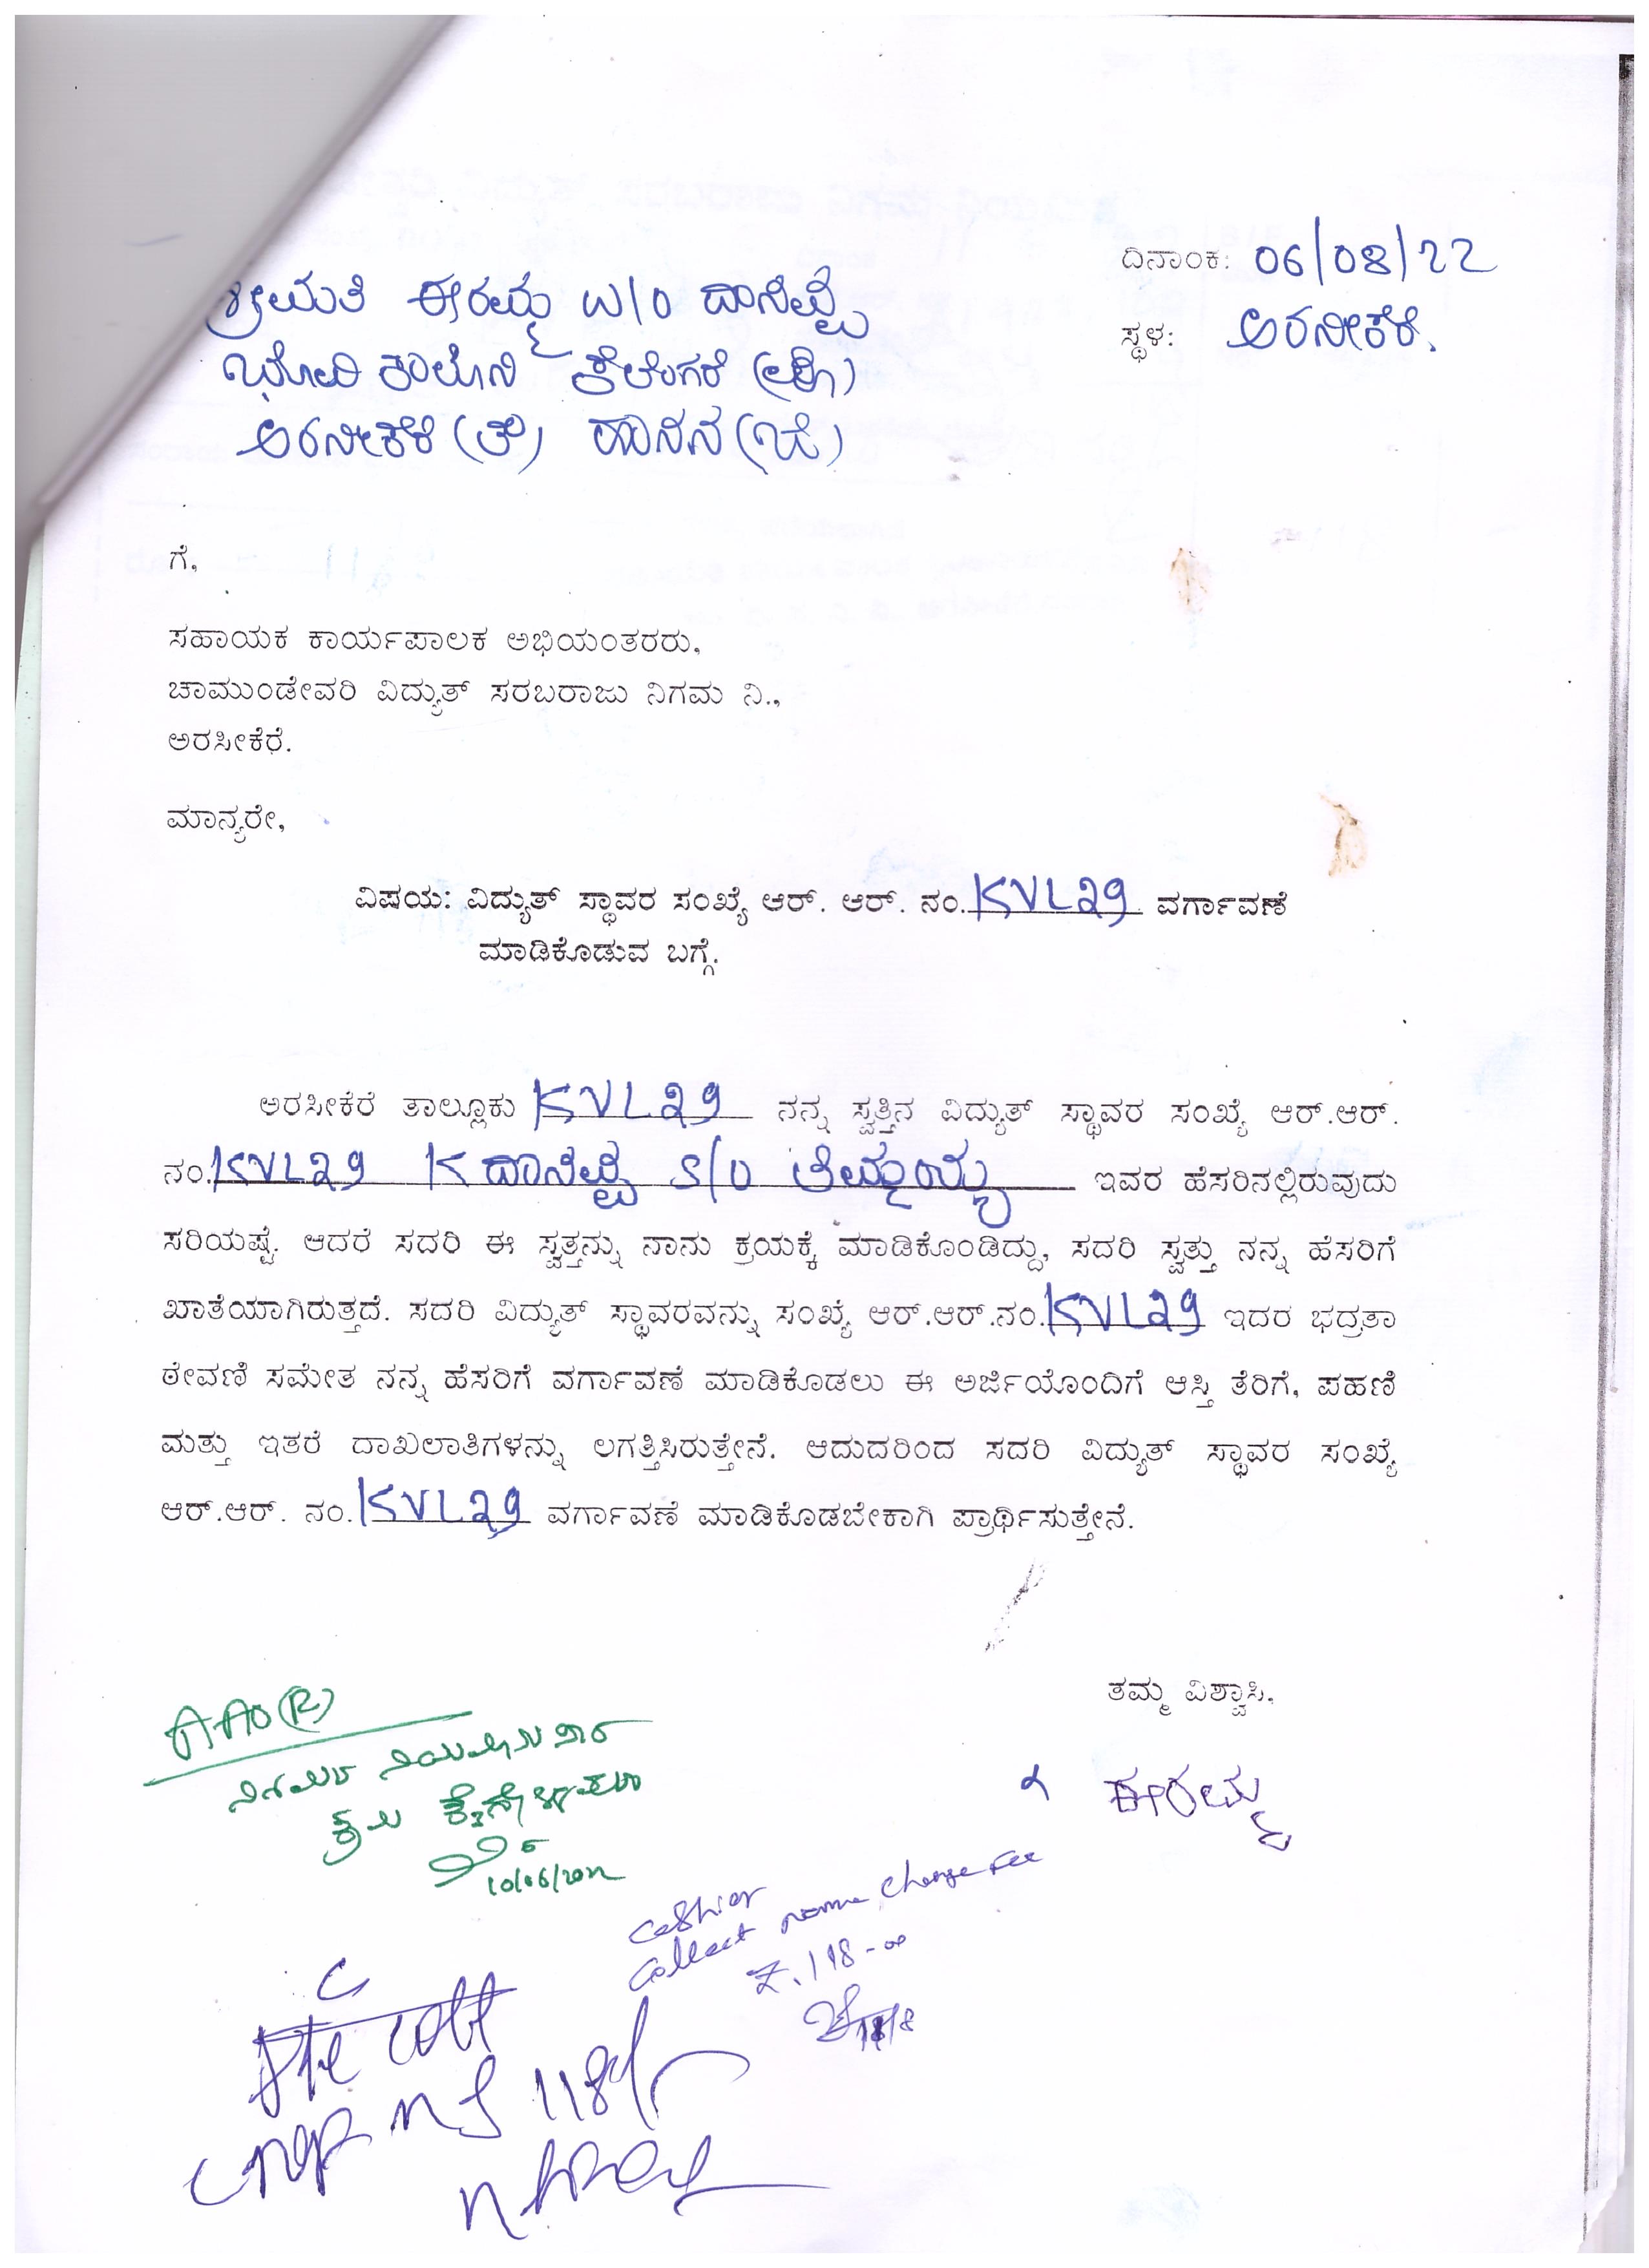 ದಿನಾಂಕ: 06/08/22
ಸ್ಥಳ: ಅರಸೀಕೆರೆ.
ಶ್ರೀಮತಿ ಈರಮ್ಮ w/o ದಾಸಪ್ಪ
ಭೋವಿ ಕಾಲೋನಿ
ಅರಸೀಕೆರೆ (ತಾ) ಹಾಸನ (ಜಿ)
ಗೆ,
ಸಹಾಯಕ ಕಾರ್ಯಪಾಲಕ ಅಭಿಯಂತರರು,
ಚಾಮುಂಡೇವರಿ ವಿದ್ಯುತ್ ಸರಬರಾಜು ನಿಗಮ ನಿ.,
ಅರಸೀಕೆರೆ.
ಮಾನ್ಯರೇ,
ವಿಷಯ: ವಿದ್ಯುತ್ ಸ್ಥಾವರ ಸಂಖ್ಯೆ ಆರ್. ಆರ್. ನಂ. KVL29 ವರ್ಗಾವಣೆ
ಮಾಡಿಕೊಡುವ ಬಗ್ಗೆ.
ಅರಸೀಕೆರೆ ತಾಲ್ಲೂಕು KVL29 ನನ್ನ ಸ್ವತ್ತಿನ ವಿದ್ಯುತ್ ಸ್ಥಾವರ ಸಂಖ್ಯೆ ಆರ್.ಆರ್.
ನಂ. KVL29 K ದಾಸಪ್ಪ S/O ತಿಮ್ಮಯ್ಯ ಇವರ ಹೆಸರಿನಲ್ಲಿರುವುದು
ಸರಿಯಷ್ಟೆ. ಆದರೆ ಸದರಿ ಈ ಸ್ವತ್ತನ್ನು ನಾನು ಕ್ರಯಕ್ಕೆ ಮಾಡಿಕೊಂಡಿದ್ದು, ಸದರಿ ಸ್ವತ್ತು ನನ್ನ ಹೆಸರಿಗೆ
ಖಾತೆಯಾಗಿರುತ್ತದೆ. ಸದರಿ ವಿದ್ಯುತ್ ಸ್ಥಾವರವನ್ನು ಸಂಖ್ಯೆ ಆರ್.ಆರ್.ನಂ. KVL29 ಇದರ ಭದ್ರತಾ
ಠೇವಣಿ ಸಮೇತ ನನ್ನ ಹೆಸರಿಗೆ ವರ್ಗಾವಣೆ ಮಾಡಿಕೊಡಲು ಈ ಅರ್ಜಿಯೊಂದಿಗೆ ಆಸ್ತಿ ತೆರಿಗೆ, ಪಹಣಿ
ಮತ್ತು ಇತರೆ ದಾಖಲಾತಿಗಳನ್ನು ಲಗತ್ತಿಸಿರುತ್ತೇನೆ. ಆದುದರಿಂದ ಸದರಿ ವಿದ್ಯುತ್ ಸ್ಥಾವರ ಸಂಖ್ಯೆ
ಆರ್.ಆರ್. ನಂ. KVL29 ವರ್ಗಾವಣೆ ಮಾಡಿಕೊಡಬೇಕಾಗಿ ಪ್ರಾರ್ಥಿಸುತ್ತೇನೆ.
ತಮ್ಮ ವಿಶ್ವಾಸಿ,
ಈರಮ್ಮ
AAO(R)
ನಿಗಮದ ನಿಯಮಾನುಸಾರ
ಕ್ರಮ ಕೈಗೊಳ್ಳುವುದು
Cashier
Collect name change Fee
118-00
18/8